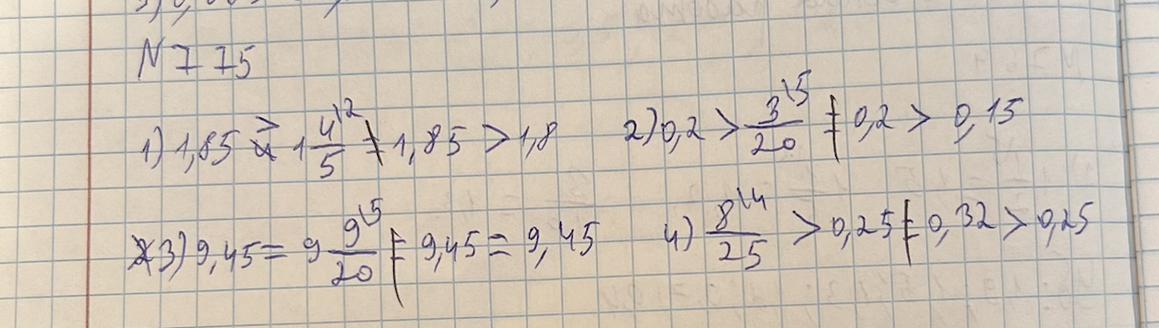 N 775
1) 1,85 > 1 4\2/5 ≠ 1,85 > 1,8 2) 0,2 > 3\5/20 ≠ 0,2 > 0,15
3) 9,45 = 9 9\5/20 ≠ 9,45 = 9,45 4) 8\4/25 > 0,25 ≠ 0,32 > 0,25